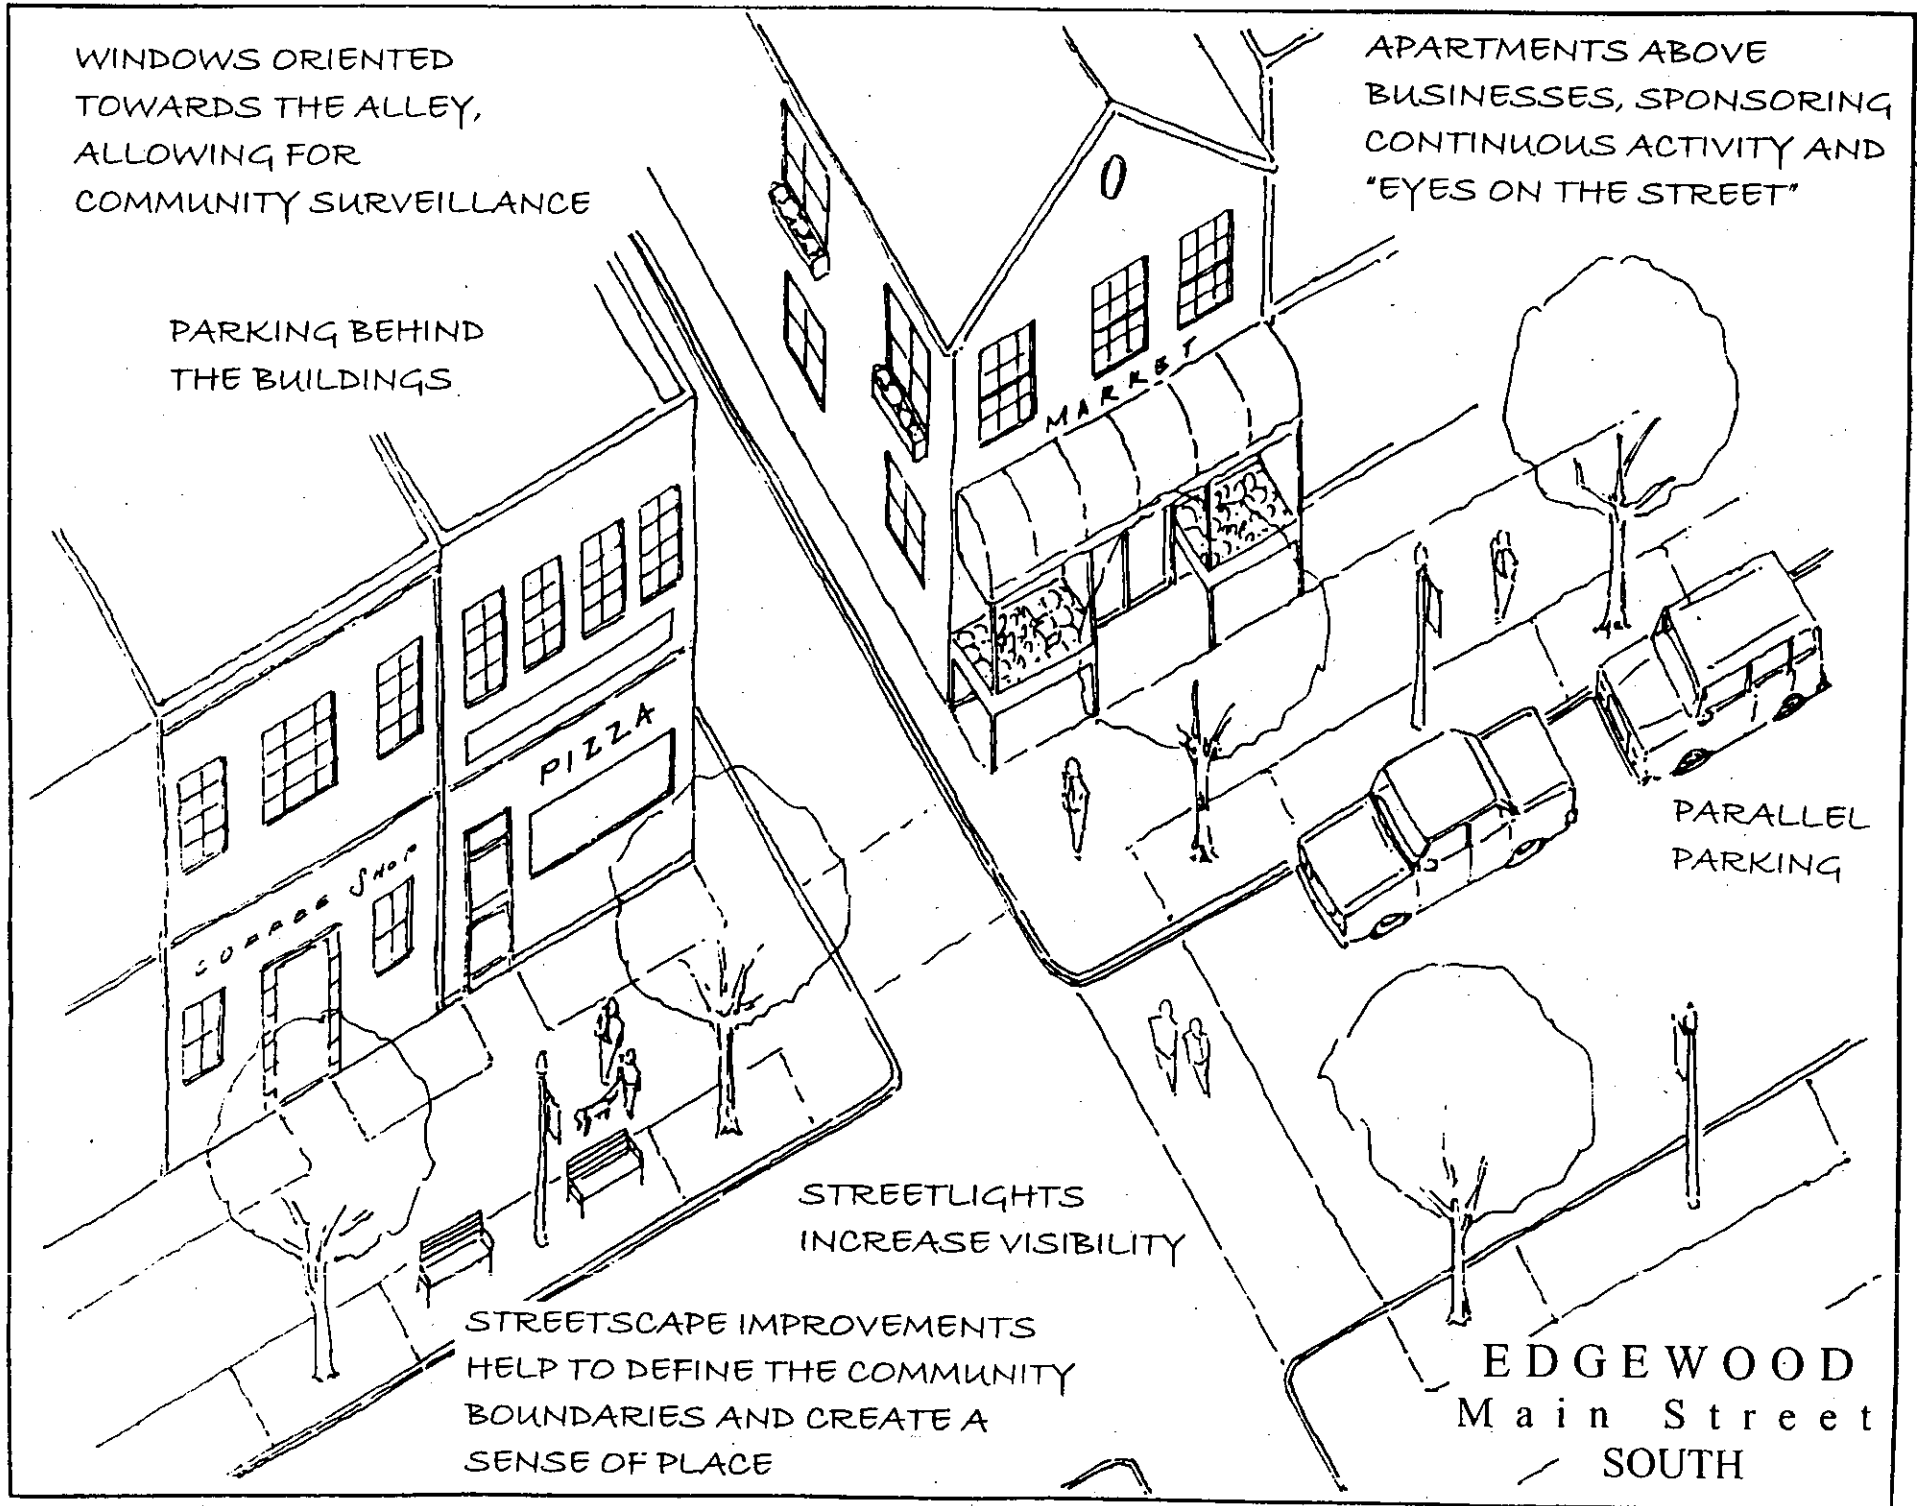 WINDOWS ORIENTED
TOWARDS THE ALLEY,
ALLOWING FOR
COMMUNITY SURVEILLANCE
APARTMENTS ABOVE
BUSINESSES, SPONSORING
CONTINUOUS ACTIVITY AND
"EYES ON THE STREET"
PARKING BEHIND
THE BUILDINGS
MARKET
PIZZA
COFFEE SHOP
PARALLEL
PARKING
STREETLIGHTS
INCREASE VISIBILITY
STREETSCAPE IMPROVEMENTS
HELP TO DEFINE THE COMMUNITY
BOUNDARIES AND CREATE A
SENSE OF PLACE
EDGEWOOD
Main Street
SOUTH